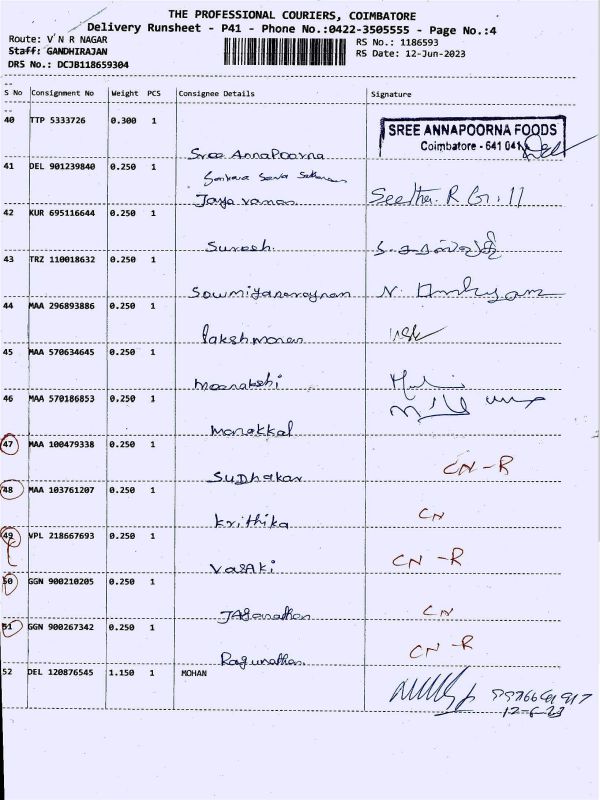 THE PROFESSIONAL COURIERS, COIMBATORE
Delivery Runsheet - P41 - Phone No.:0422-3505555 - Page No.:4
Route: V N R NAGAR
RS No.: 1186593
Staff: GANDHIRAJAN
RS Date: 12-Jun-2023
DRS No.: DCJB118659304
S No Consignment No Weight PCS Consignee Details Signature
40 TTP 5333726 0.300 1
SREE ANNAPOORNA FOODS
Coimbatore - 641 041
Sree AnnaPoorna
41 DEL 901239840 0.250 1
Jayaraman
42 KUR 695116644 0.250 1
Suresh
43 TRZ 110018632 0.250 1
Sowmiyanarayanan
44 MAA 296893886 0.250 1
Lakshmanan
45 MAA 570634645 0.250 1
Meenakshi
46 MAA 570186853 0.250 1
Manakkal
47 MAA 100479338 0.250 1 CN-R
SuDhakar
48 MAA 103761207 0.250 1 CN
Krithika
49 VPL 218667693 0.250 1 CN-R
VasAki
50 GGN 900210205 0.250 1 CN
JAganathan
51 GGN 900267342 0.250 1 CN-R
Ragunathan
52 DEL 120876545 1.150 1 MOHAN
12-6-23